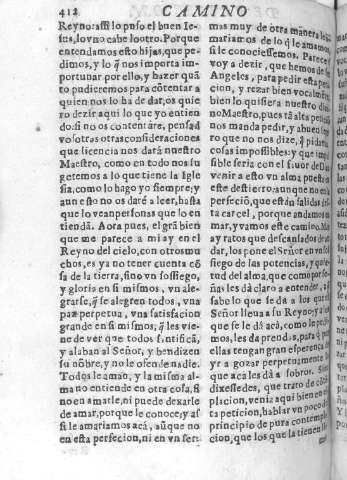 412
CAMINO
Reyno: assi lo puso el buen Ie-
sus, lo vno cabe lo otro. Porque
entendamos esto hijas, que pe-
dimos, y lo q̃ nos importa im-
portunar por ello, y hazer quã
to pudieremos para cõtentar a
quien nos lo ha de dar, os quie
ro dezir aqui lo que yo entien
do: si no os contentàre, pensad
vosotras otras consideraciones
que licencia nos darà nuestro
Maestro, como en todo nos su
getemos a lo que tiene la Igle
sia, como lo hago yo siempre; y
aun esto no os darè a leer, hasta
que lo vean personas que lo en
tiendã. Aora pues, el grã bien
que me parece a mi ay en el
Reyno del cielo, con otros mu
chos, es ya no tener cuenta cõ
sa de la tierra, sino vn sossiego,
y gloria en si mismos, vn ale-
grarse, q̃ se alegren todos, vna
paz perpetua, vna satisfacion
grande en si mismos, q̃ les vie-
ne de ver que todos sãntificã,
y alaban al Señor, y bendizen
su nõbre, y no le ofende nadie.
Todos le aman, y la misma al-
ma no entiende en otra cosa, si
no en amarle, ni puede dexarle
de amar, porque le conoce; y as
si le amariamos acà, aũque no
en esta perfecion, ni en vn ser:
mas muy de otra manera le
mariamos de lo q̃ le amamos,
si le conociessemos. Parece
voy a dezir, que hemos de
Angeles, para pedir esta peti
cion, y rezar bien vocalmẽte
bien lo quisiera nuestro diui
no Maestro, pues tã alta peticiõ
nos manda pedir, y a buen segu
ro que no nos dize, q̃ pidamos
cosas impossibles: y que impos
sible seria con el fauor de Dios
venir a esto vn alma puesta en
este destierro: aunque no en la
perfeciõ, que estãn salidas des
ta carcel, porque andamos en
mar, y vamos este camino. Mas
ay ratos que de cansados de an
dar, los pone el Señor en vn sos
siego de las potencias, y quie-
tud del alma, que como por se-
ñas les dà claro a entender, a que
sabe lo que se da a los que el
Señor lleua a su Reyno: y a los
que se le dà acà, como le pedi
mos, les da prendas, para q̃ por
ellas tengan gran esperança de
yr a gozar perpetuamente lo
que acà les dà a sorbos. Sino
dixessedes, que trato de contẽ
placion, venia aqui bien en es
ta peticion, hablar vn poco de
principio de pura contempla
cion, que los que la tienen lla